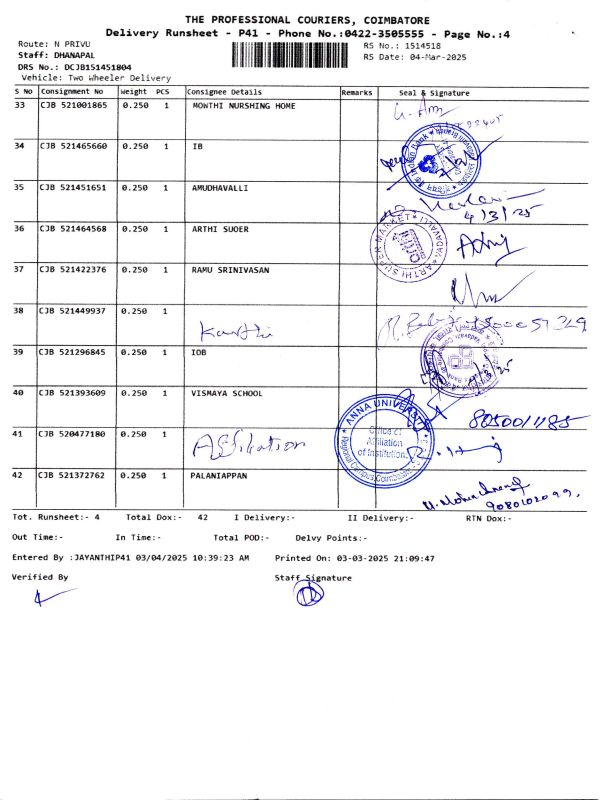 THE PROFESSIONAL COURIERS, COIMBATORE
Delivery Runsheet - P41 - Phone No.:0422-3505555 - Page No.:4
Route: N PRIVU
RS No.: 1514518
Staff: DHANAPAL
RS Date: 04-Mar-2025
DRS No.: DCJB151451804
Vehicle: Two Wheeler Delivery
S No Consignment No Weight PCS Consignee Details Remarks Seal & Signature
33 CJB 521001865 0.250 1 MONTHI NURSHING HOME
34 CJB 521465660 0.250 1 IB
Indian Bank
35 CJB 521451651 0.250 1 AMUDHAVALLI
4/3/25
36 CJB 521464568 0.250 1 ARTHI SUOER
ARTHI SUPER MARKET VADAVALLI
37 CJB 521422376 0.250 1 RAMU SRINIVASAN
38 CJB 521449937 0.250 1
39 CJB 521296845 0.250 1 IOB
40 CJB 521393609 0.250 1 VISMAYA SCHOOL
8050011185
41 CJB 520477180 0.250 1 Affiliation
ANNA UNIVERSITY
Office of
Affiliation
of Institution
Regional Campus, Coimbatore
42 CJB 521372762 0.250 1 PALANIAPPAN
9080102099
Tot. Runsheet:- 4 Total Dox:- 42 I Delivery:- II Delivery:- RTN Dox:-
Out Time:- In Time:- Total POD:- Delvy Points:-
Entered By :JAYANTHIP41 03/04/2025 10:39:23 AM Printed On: 03-03-2025 21:09:47
Verified By Staff Signature